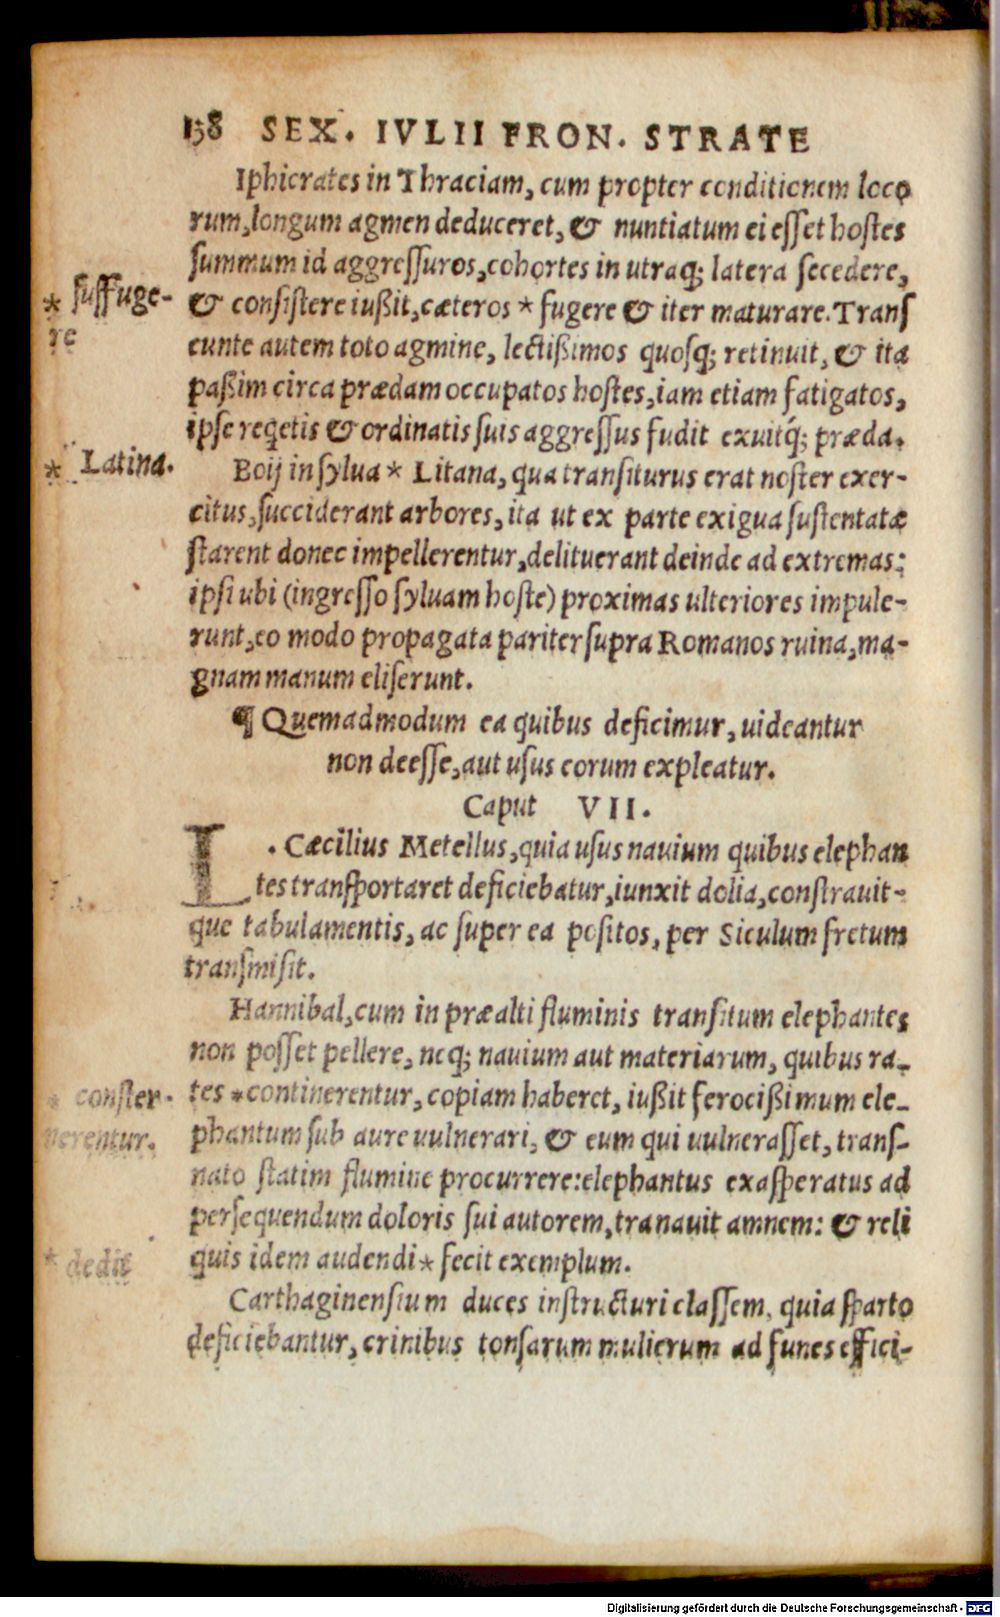 138 SEX. IVLII FRON. STRATE
Iphicrates in Thraciam, cum propter conditionem loco
rum, longum agmen deduceret, & nuntiatum ei esset hostes
summum id aggressuros, cohortes in utraq; latera secedere,
* suffuge-
re
& consistere iußit, cæteros * fugere & iter maturare. Trans
eunte autem toto agmine, lectißimos quosq; retinuit, & ita
paßim circa prædam occupatos hostes, iam etiam fatigatos,
ipse reqetis & ordinatis suis aggressus fudit exuitq́; præda.
* Latina.
Boij in sylua * Litana, qua transiturus erat noster exer-
citus, succiderant arbores, ita ut ex parte exigua sustentatæ
starent donec impellerentur, delituerant deinde ad extremas:
ipsi ubi (ingresso syluam hoste) proximas ulteriores impule-
runt, eo modo propagata pariter supra Romanos ruina, ma-
gnam manum eliserunt.
¶ Quemadmodum ea quibus deficimur, uideantur
non deesse, aut usus eorum expleatur.
Caput VII.
L. Cæcilius Metellus, quia usus nauium quibus elephan
tes transportaret deficiebatur, iunxit dolia, constrauit-
que tabulamentis, ac super ea positos, per Siculum fretum
transmisit.
Hannibal, cum in præalti fluminis transitum elephantes
non posset pellere, neq; nauium aut materiarum, quibus ra-
* conster-
nerentur.
tes * continerentur, copiam haberet, iußit ferocißimum ele-
phantum sub aure uulnerari, & eum qui uulnerasset, trans-
nato statim flumine procurrere: elephantus exasperatus ad
persequendum doloris sui autorem, tranauit amnem: & reli
* dedit
quis idem audendi * fecit exemplum.
Carthaginensium duces instructuri classem, quia sparto
deficiebantur, crinibus tonsarum mulierum ad funes effici-
Digitalisierung gefördert durch die Deutsche Forschungsgemeinschaft - DFG